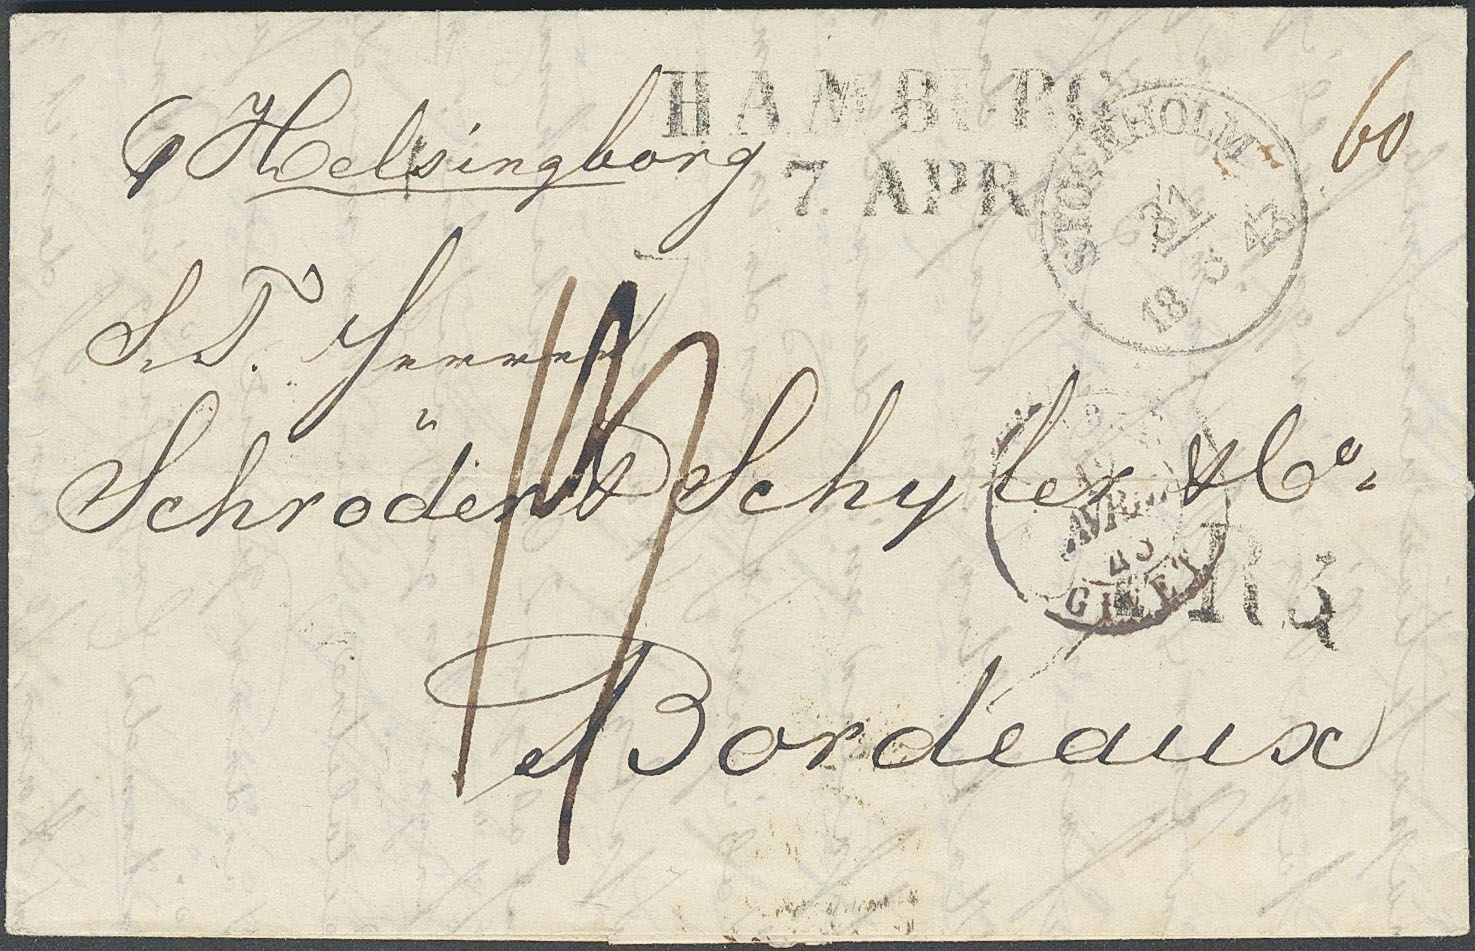 HAMBURG
7. APR
STOCKHOLM
31
3
1843
60
p Helsingborg
S. T. Herren
Schröder & Schyler & Co.
AVRIL
43
GIVET
R3
Bordeaux